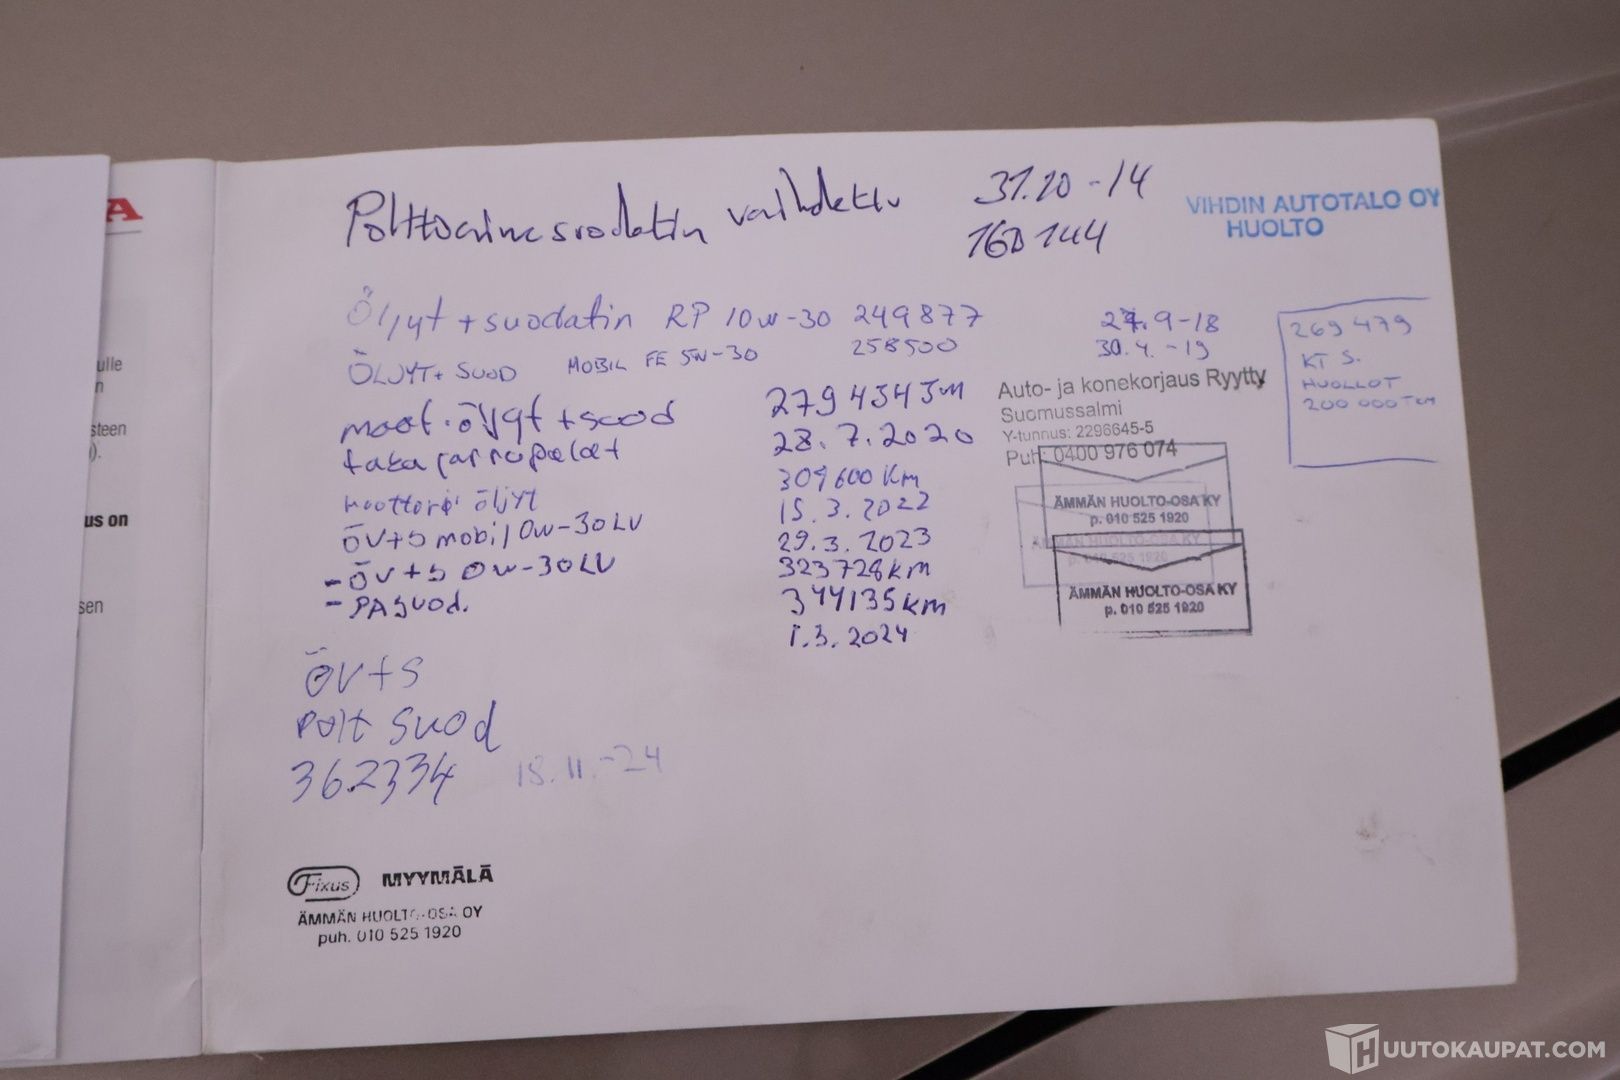 A
ulle
n
steen
).
us on
sen
Polttoainesuodatin vaihdettu 31.10-14
160144
VIHDIN AUTOTALO OY
HUOLTO
Öljyt + suodatin RP 10W-30 249877 27.9-18
ÖLJYT+ SUOD MOBIL FE 5W-30 258500 30.4.-19
269 479
KT S.
HUOLLOT
200 000 TKM
moot.öljyt + suod 279454
taka jarrupalat 28.7.2020
Auto- ja konekorjaus Ryytty
Suomussalmi
Y-tunnus: 2296645-5
Puh: 0400 976 074
moottori öljyt 309600 Km
15.3.2022
ÖV+S mobil 0W-30LV 29.3.2023
323728km
- ÖV+S 0W-30LV 344135km
- PA suod. 1.3.2024
ÄMMÄN HUOLTO-OSA KY
p. 010 525 1920
ÄMMÄN HUOLTO-OSA KY
010 525 1920
ÄMMÄN HUOLTO-OSA KY
p. 010 525 1920
ÖV+S
Polt Suod
362334 18.11.-24
Fixus MYYMÄLÄ
ÄMMÄN HUOLTO-OSA OY
puh. 010 525 1920
HUUTOKAUPAT.COM